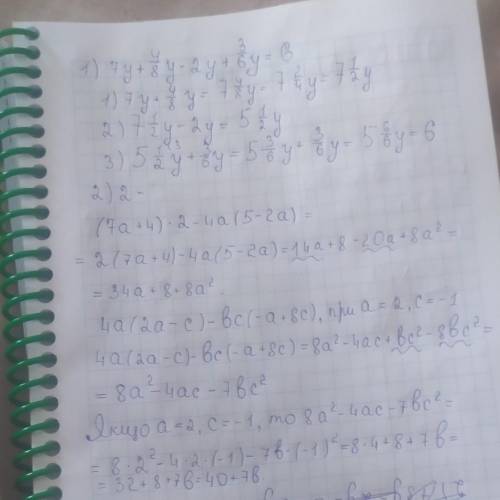 1) 7y + 4/8 y - 2y + 3/6 y = 6
1) 7y + 4/8 y = 7 4/8 y = 7 2/4 y = 7 1/2 y
2) 7 1/2 y - 2y = 5 1/2 y
3) 5 1/2 y + 3/6 y = 5 3/6 y + 3/6 y = 5 6/6 y = 6
2) 2 -
(7a+4)·2-4a(5-2a)=
= 2(7a+4)-4a(5-2a)=14a+8-20a+8a²=
= 34a+8+8a².
4a(2a-c)-bc(-a+8c), при a=2, c=-1
4a(2a-c)-bc(-a+8c)=8a²-4ac+bc²-8bc²=
= 8a²-4ac-7bc²
Якщо a=2, c=-1, то 8a²-4ac-7bc²=
= 8·2²-4·2·(-1)-7b·(-1)²=8·4+8+7b=
= 32+8+7b=40+7b.